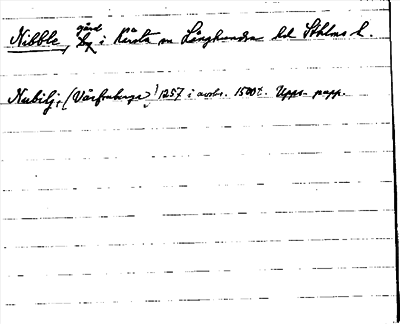 gård
Nibble, by i Kårsta sn Långhundra hd Sthlms l.
Nubilj, (Vårfruberga) 1257 i avskr. 1500t. Upps. papp.